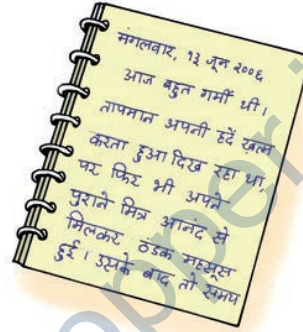 मंगलवार, १३ जून २००६
आज बहुत गर्मी थी।
तापमान अपनी हदें खत्म
करता हुआ दिख रहा था,
पर फिर भी अपने
पुराने मित्र आनंद से
मिलकर ठंडक महसूस
हुई। उसके बाद तो समय